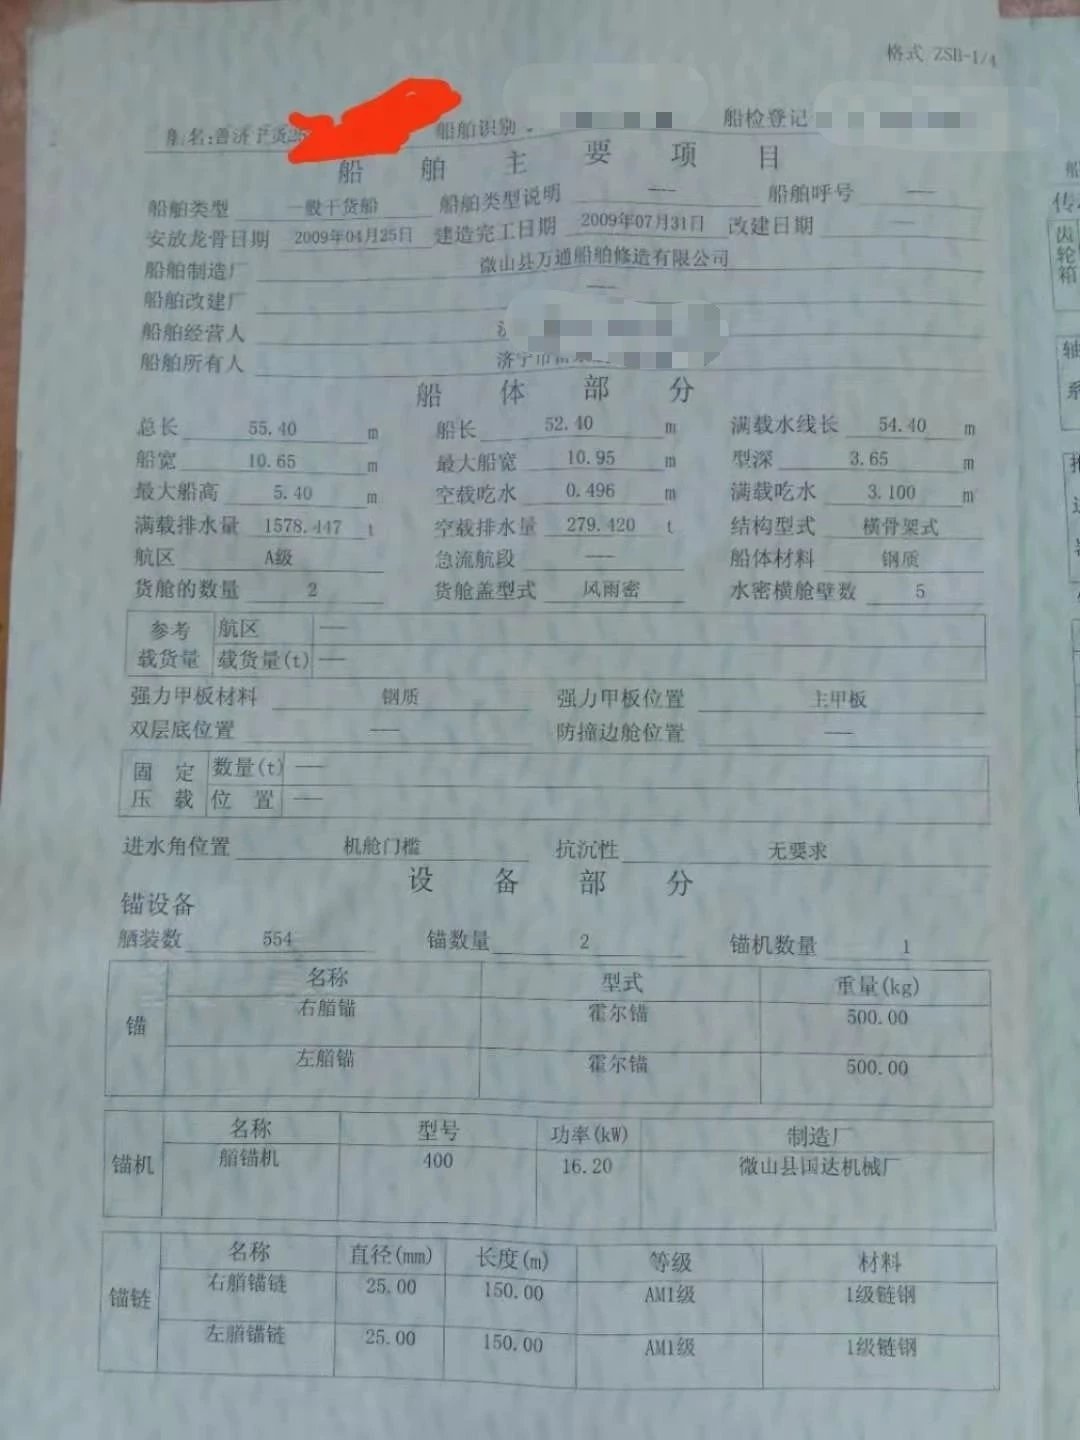 格式 ZSB-1/4
船名:鲁济宁货25 船舶识别 船检登记
船舶主要项目
船舶类型 一般干货船 船舶类型说明 —— 船舶呼号 ——
安放龙骨日期 2009年04月25日 建造完工日期 2009年07月31日 改建日期
船舶制造厂 微山县万通船舶修造有限公司
船舶改建厂 ——
船舶经营人
船舶所有人 济宁市
船体部分
总长 55.40 m 船长 52.40 m 满载水线长 54.40 m
船宽 10.65 m 最大船宽 10.95 m 型深 3.65 m
最大船高 5.40 m 空载吃水 0.496 m 满载吃水 3.100 m
满载排水量 1578.447 t 空载排水量 279.420 t 结构型式 横骨架式
航区 A级 急流航段 —— 船体材料 钢质
货舱的数量 2 货舱盖型式 风雨密 水密横舱壁数 5
参考 航区 ——
载货量 载货量(t) ——
强力甲板材料 钢质 强力甲板位置 主甲板
双层底位置 —— 防撞边舱位置 ——
固定 数量(t) ——
压载 位置 ——
进水角位置 机舱门槛 抗沉性 无要求
设备部分
锚设备
舾装数 554 锚数量 2 锚机数量 1
名称 型式 重量(kg)
锚
右艏锚 霍尔锚 500.00
左艏锚 霍尔锚 500.00
名称 型号 功率(kW) 制造厂
锚机 艏锚机 400 16.20 微山县国达机械厂
名称 直径(mm) 长度(m) 等级 材料
锚链
右艏锚链 25.00 150.00 AM1级 1级链钢
左艏锚链 25.00 150.00 AM1级 1级链钢
船
传
齿
轮
箱
轴
系
推